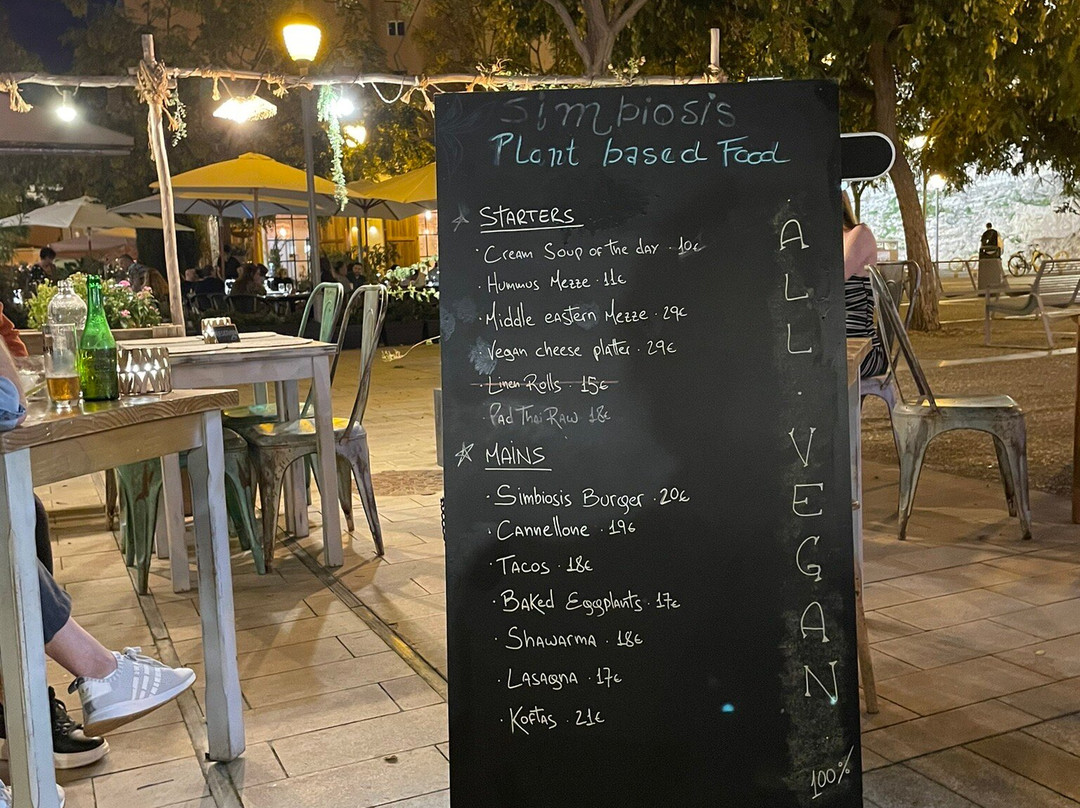 Simbiosis
Plant based Food
STARTERS
· Cream Soup of the day · 10€
· Hummus Mezze · 11€
· Middle eastern Mezze · 29€
· Vegan cheese platter · 29€
· Linen Rolls · 15€
· Pad Thai Raw 18€
MAINS
· Simbiosis Burger · 20€
· Cannellone · 19€
· Tacos · 18€
· Baked Eggplants · 17€
· Shawarma · 18€
· Lasagna · 17€
· Koftas · 21€
ALL · VEGAN
100%